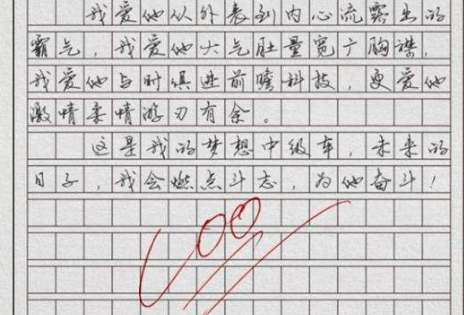 我爱他从外表到内心流露出的
霸气，我爱他大气肚量宽广胸襟，
我爱他与时俱进前瞻科技，更爱他
激情柔情游刃有余。
这是我的梦想中级车，未来的
日子，我会燃点斗志，为他奋斗！
100